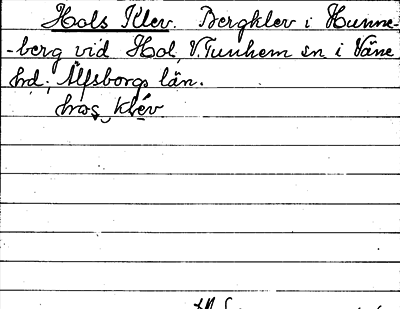 Hols Klev. Bergklev i Hunne-
-berg vid Hol, V. Tunhem sn i Väne
hd, Älfsborgs län.